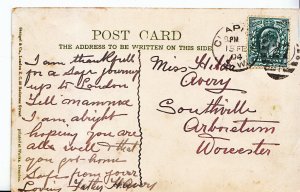 POST CARD
THE ADDRESS TO BE WRITTEN ON THIS SIDE
I am thankful
for a safe journey
up to London
Tell mamma
I am alright
hoping you are
all well & that
you got home
safe from your
Loving Father
Miss Hilda
Avery
Southville
Arboretum
Worcester
CLAPHAM
8 PM
04